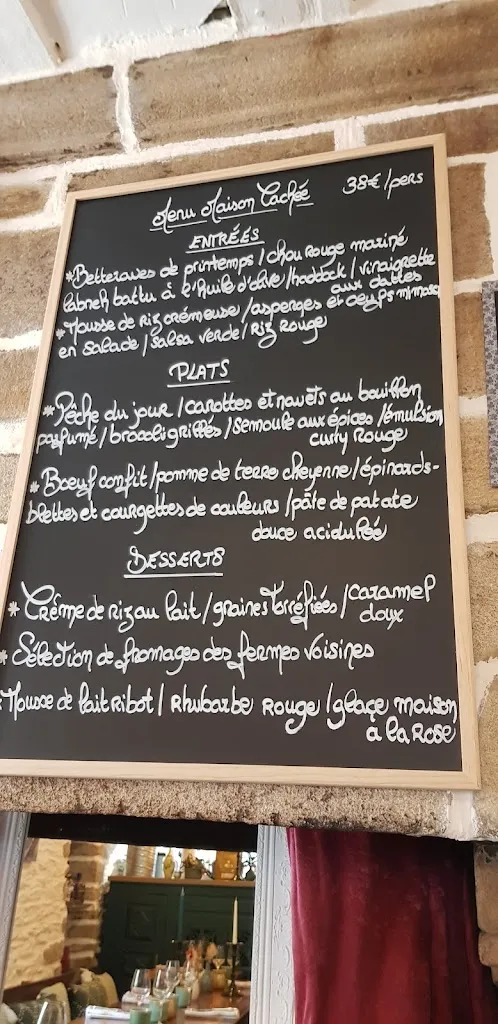 Menu Maison Cachée 38€/pers
ENTRÉES
*Betteraves de printemps / chou rouge mariné
labneh battu à l'huile d'olive / haddock / vinaigrette
aux dattes
*Mousse de riz crémeuse / asperges et oeufs mimosa
en salade / salsa verde / riz rouge
PLATS
*Pêche du jour / carottes et navets au bouillon
parfumé / brocoli grillés / semoule aux épices / émulsion
curry rouge
*Boeuf confit / pomme de terre cheyenne / épinards-
blettes et courgettes de couleurs / pâte de patate
douce acidulée
DESSERTS
*Crème de riz au lait / graines torréfiées / caramel
doux
*Sélection de fromages des fermes voisines
*Mousse de lait ribot / Rhubarbe rouge / glaçe maison
à la Rose